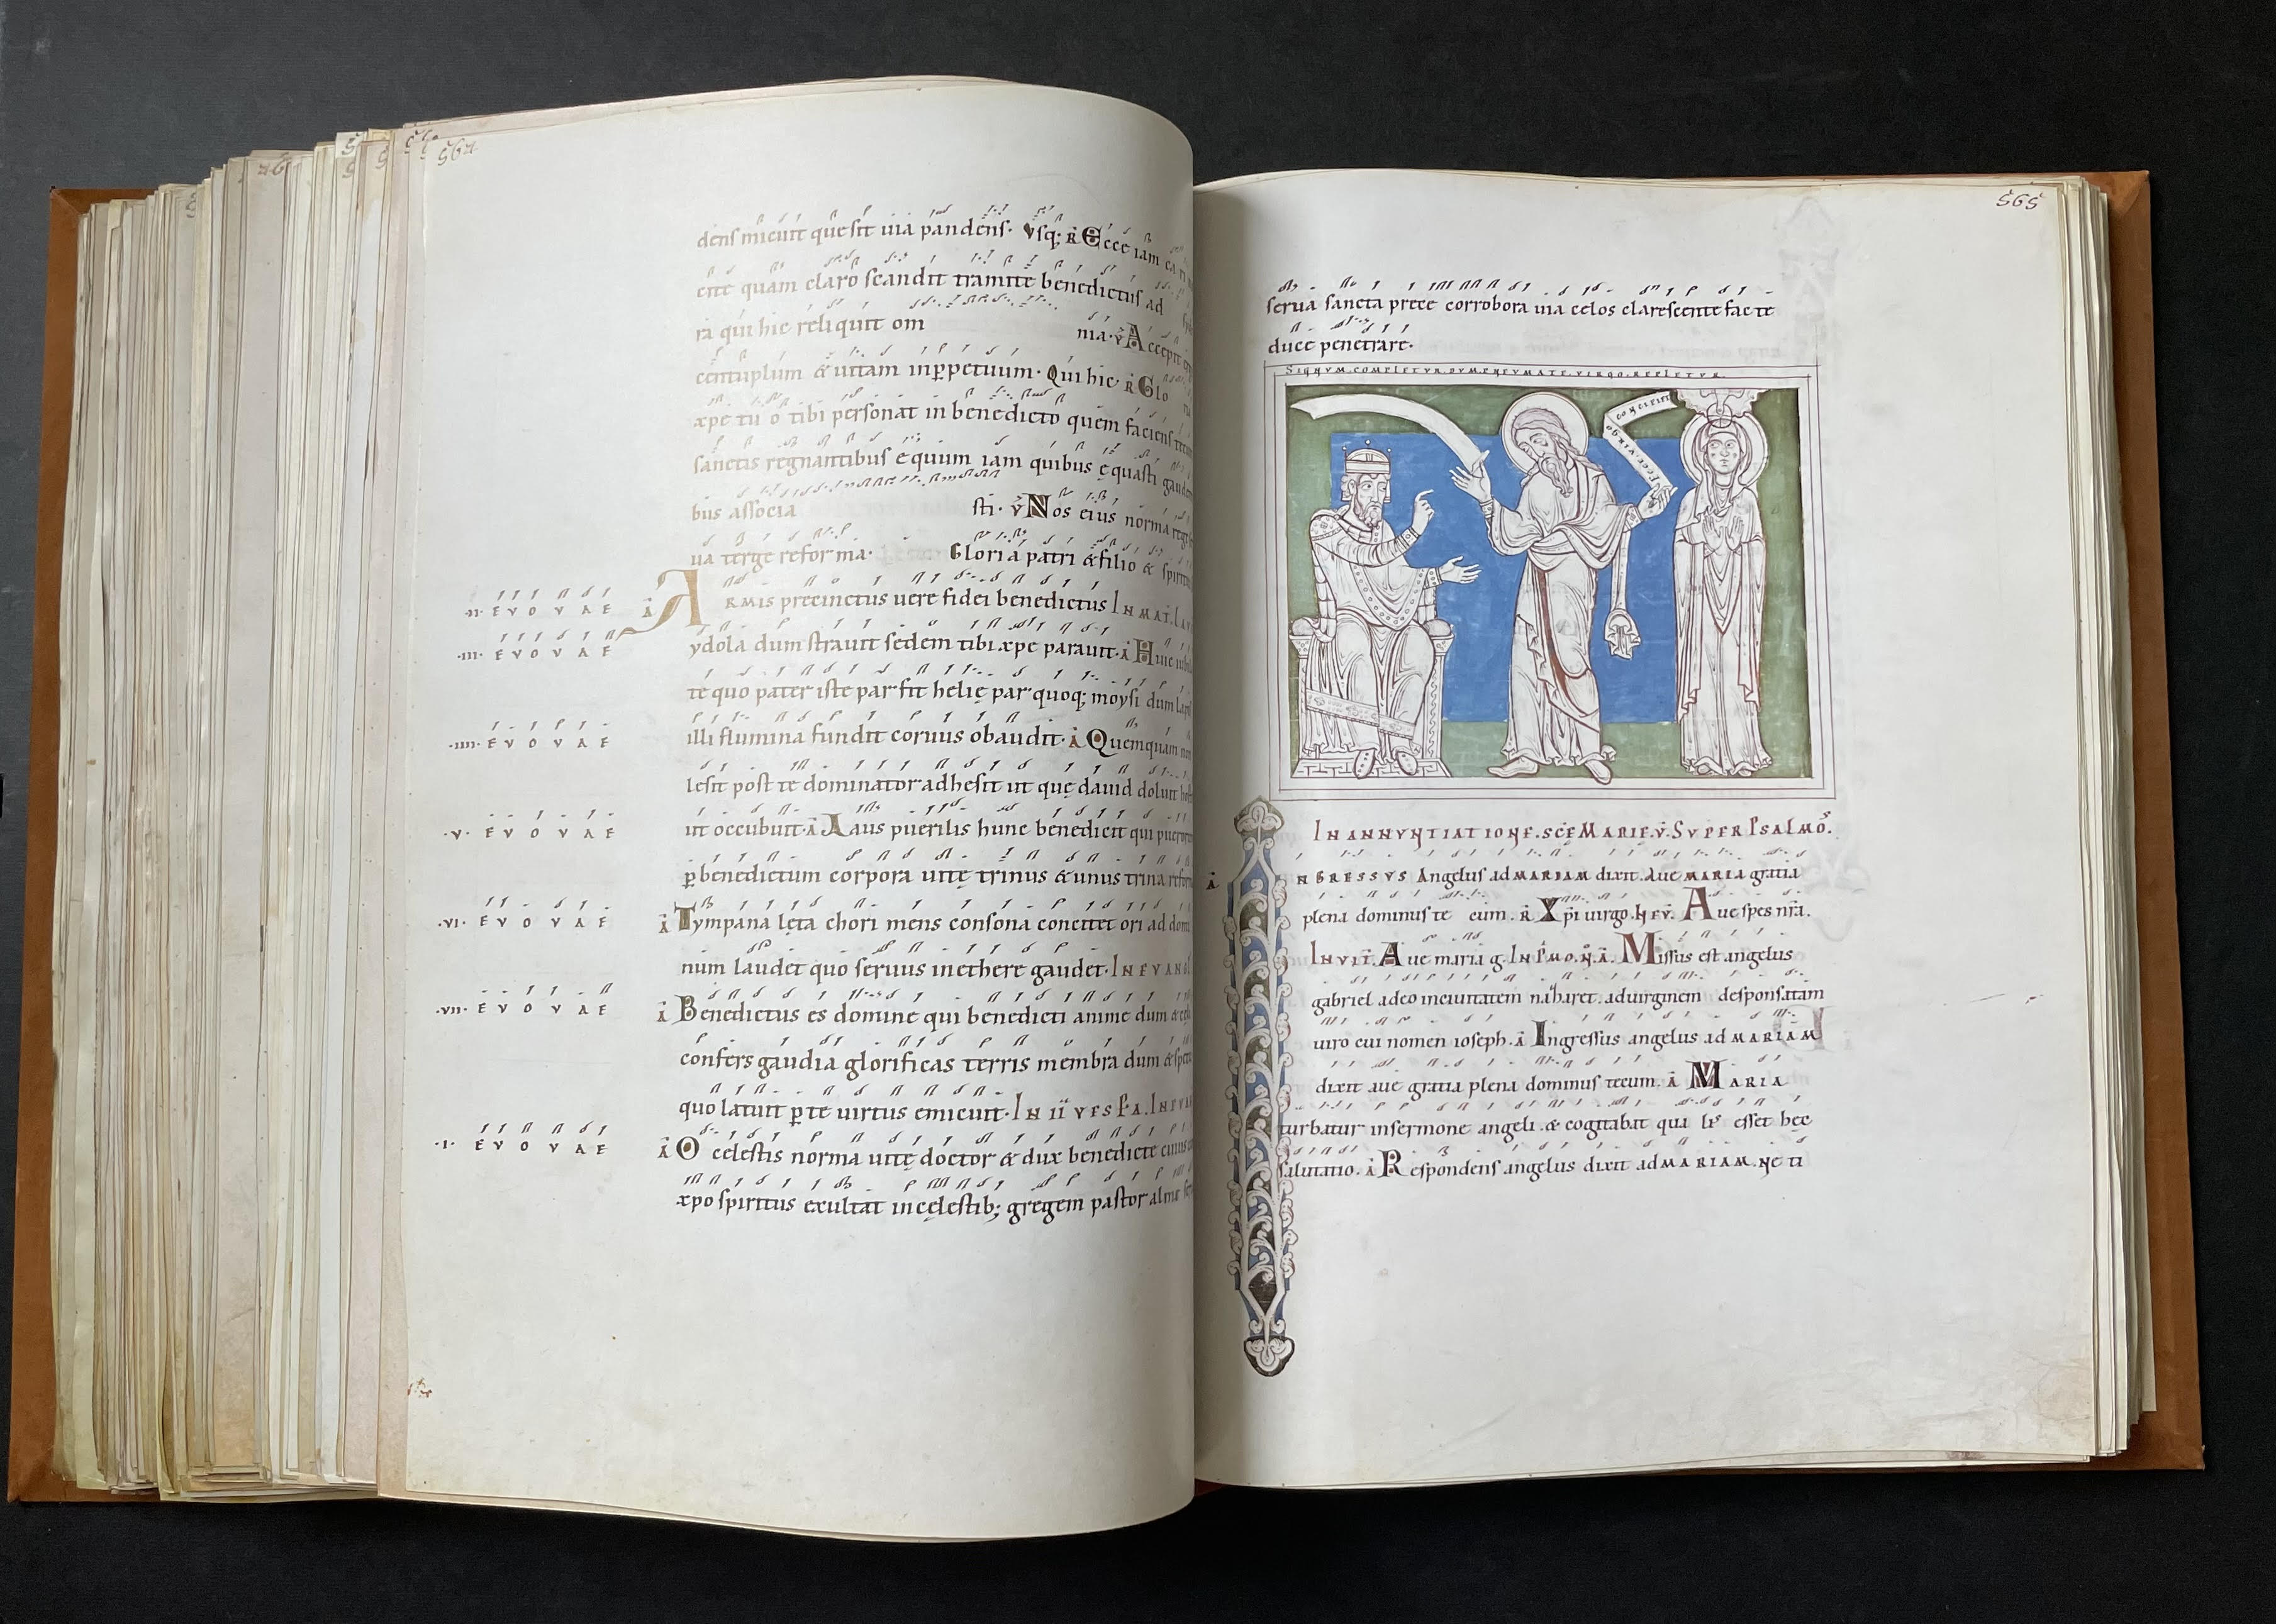 564
dens micuit que sit uia pandens. Vsq; R Ecce iam
cite quam claro scandit tramite benedictus ad
ra qui hic reliquit om nia. V Accepit
centuplum & uitam inppetuum. Qui hic. R Glo
xpe tu o tibi personat in benedicto quem faciens
sanctis regnantibus equum iam quibus equasti
bus associa sti. V Nos eius norma
ua terge reforma. Gloria patri & filio &
.II. EVOVAE A ARMIS precinctus uere fidei benedictus IN MAT.
.III. EVOVAE ydola dum strauit sedem tibi xpe parauit. A
te quo pater iste par fit helie par quoq; moysi dum
.IIII. EVOVAE illi flumina fundit coruus obaudit. A Quemquam
lesit post te dominator adhesit ut que dauid doluit
.V. EVOVAE ut occubuit. A Laus puerilis hunc benedicit qui
p benedictum corpora uite trinus & unus trina
.VI. EVOVAE A Tympana leta chori mens consona concitet ori ad
num laudet quo seruus inethere gaudet. IN EVANG
.VII. EVOVAE A Benedictus es domine qui benedicti anime dum
confers gaudia glorificas terris membra dum &
quo latuit p te uirtus emicuit. IN II VESPA.
.I. EVOVAE A O celestis norma uite doctor & dux benedicte
xpo spiritus exultat incelestib; gregem pastor alme
565
serua sancta prece corrobora uia celos clarescente fac te
duce penetrare.
SIGNVM COMPLETVR DVM PNEVMATE VIRGO REPLETVR
ECCE VIRGO CONCIPIET
IN ANNVNTIATIONE. SCE MARIE. V. SVPER PSALMO.
A NGRESSVS Angelus ad MARIAM dixit. Aue MARIA gratia
plena dominus te cum. R Xpi uirgo. Aue spes nra.
INVIT. Aue maria g. A. Missus est angelus
gabriel adeo inciuitatem nazaret. aduirginem desponsatam
uiro cui nomen ioseph. A Ingressus angelus ad MARIAM
dixit aue gratia plena dominus tecum. A MARIA
turbatur insermone angeli. & cogitabat qua lis esset hec
salutatio. A Respondens angelus dixit ad MARIAM. Ne ti